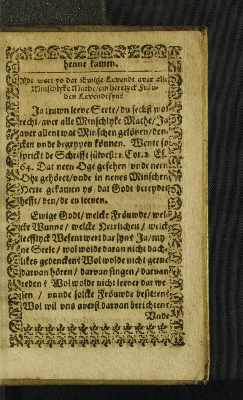 henne kamen.
Wat wart ys dat Ewige Levendt aver alle
Minschlyke Mathe / ein herrlyck Fröuw-
den Levendt syn?
Ja truwen leeve Seele / du sechst wol
recht / aver alle Minschlyke Mathe / Ja
aver allent wat Minschen gelöven / den-
cken vnde begrypen können. Wente so
spricht de Schrifft sülvest: 1. Cor. 2. Es.
64. Dat nen Oge gesehen vnde neen
Ohr gehöret / vnde in nenes Minschen
Herte gekamen ys / dat Godt bereydet
hefft / den / de en leeven.
Ewige Godt / welcke Fröuwde / wel-
cke Wunne / welcke Herrlicheit / welck
leefflyck Wesent wert dar syn? Ja / my-
ne Seele / wol wolde daran nicht dach-
likes gedencken? Wol wolde nicht geerne
darvan hören / darvan singen / darvan
reden? Wol wolde nicht leever dar we-
sen / vnnde solcke Fröuwde besitten?
Wol wil vns averst darvan berichten?
Vnde